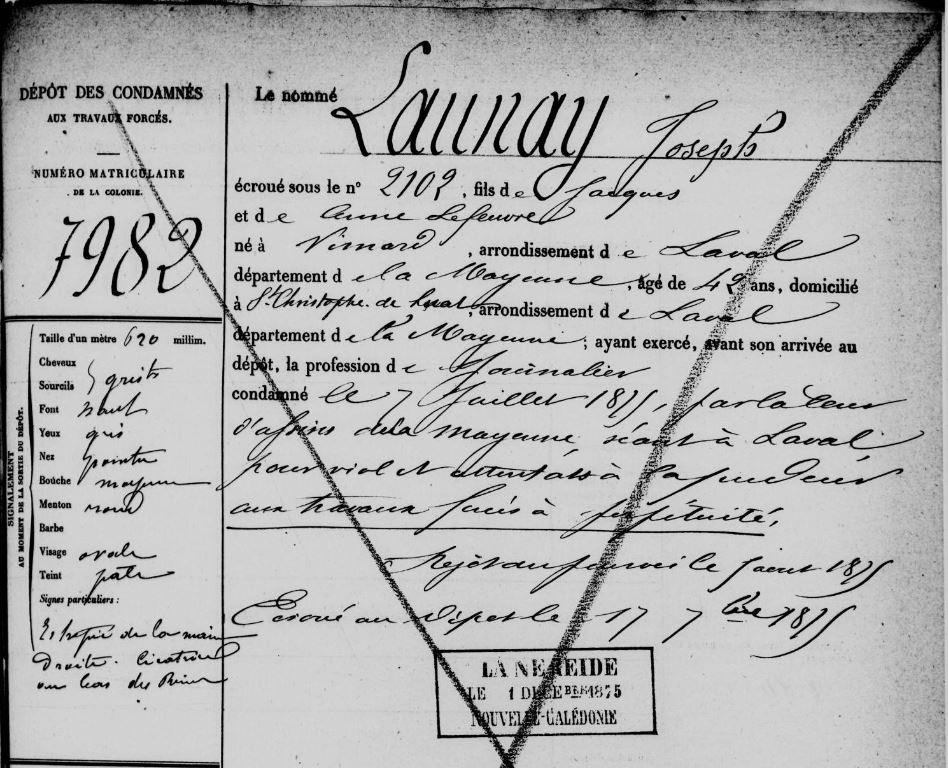 DÉPÔT DES CONDAMNÉS
AUX TRAVAUX FORCÉS.
NUMÉRO MATRICULAIRE
DE LA COLONIE.
7982
SIGNALEMENT
AU MOMENT DE LA SORTIE DU DÉPÔT.
Taille d'un mètre 620 millim.
Cheveux
Sourcils } gris
Font haut
Yeux gris
Nez pointu
Bouche moyenne
Menton rond
Barbe
Visage ovale
Teint pâle
Signes particuliers :
Estropié de la main
droite. Cicatrice
au bas des Reins
Le nommé Launay Joseph
écroué sous le n° 2102, fils de Jacques
et de Anne Lefeuvre
né à , arrondissement de Laval
département de la Mayenne, âgé de 42 ans, domicilié
à St Christophe du Luat, arrondissement de Laval
département de la Mayenne; ayant exercé, avant son arrivée au
dépôt, la profession de Journalier
condamné le 7 Juillet 1875, par la Cour
d'assises de la Mayenne séant à Laval
pour viol et attentats à la pudeur
aux travaux forcés à perpétuité,
Rejet du pourvoi le 5 aout 1875
Ecroué au Dépôt le 17 7bre 1875
LA NEREIDE
LE 1 DECEBRE 1875
NOUVELLE-CALÉDONIE